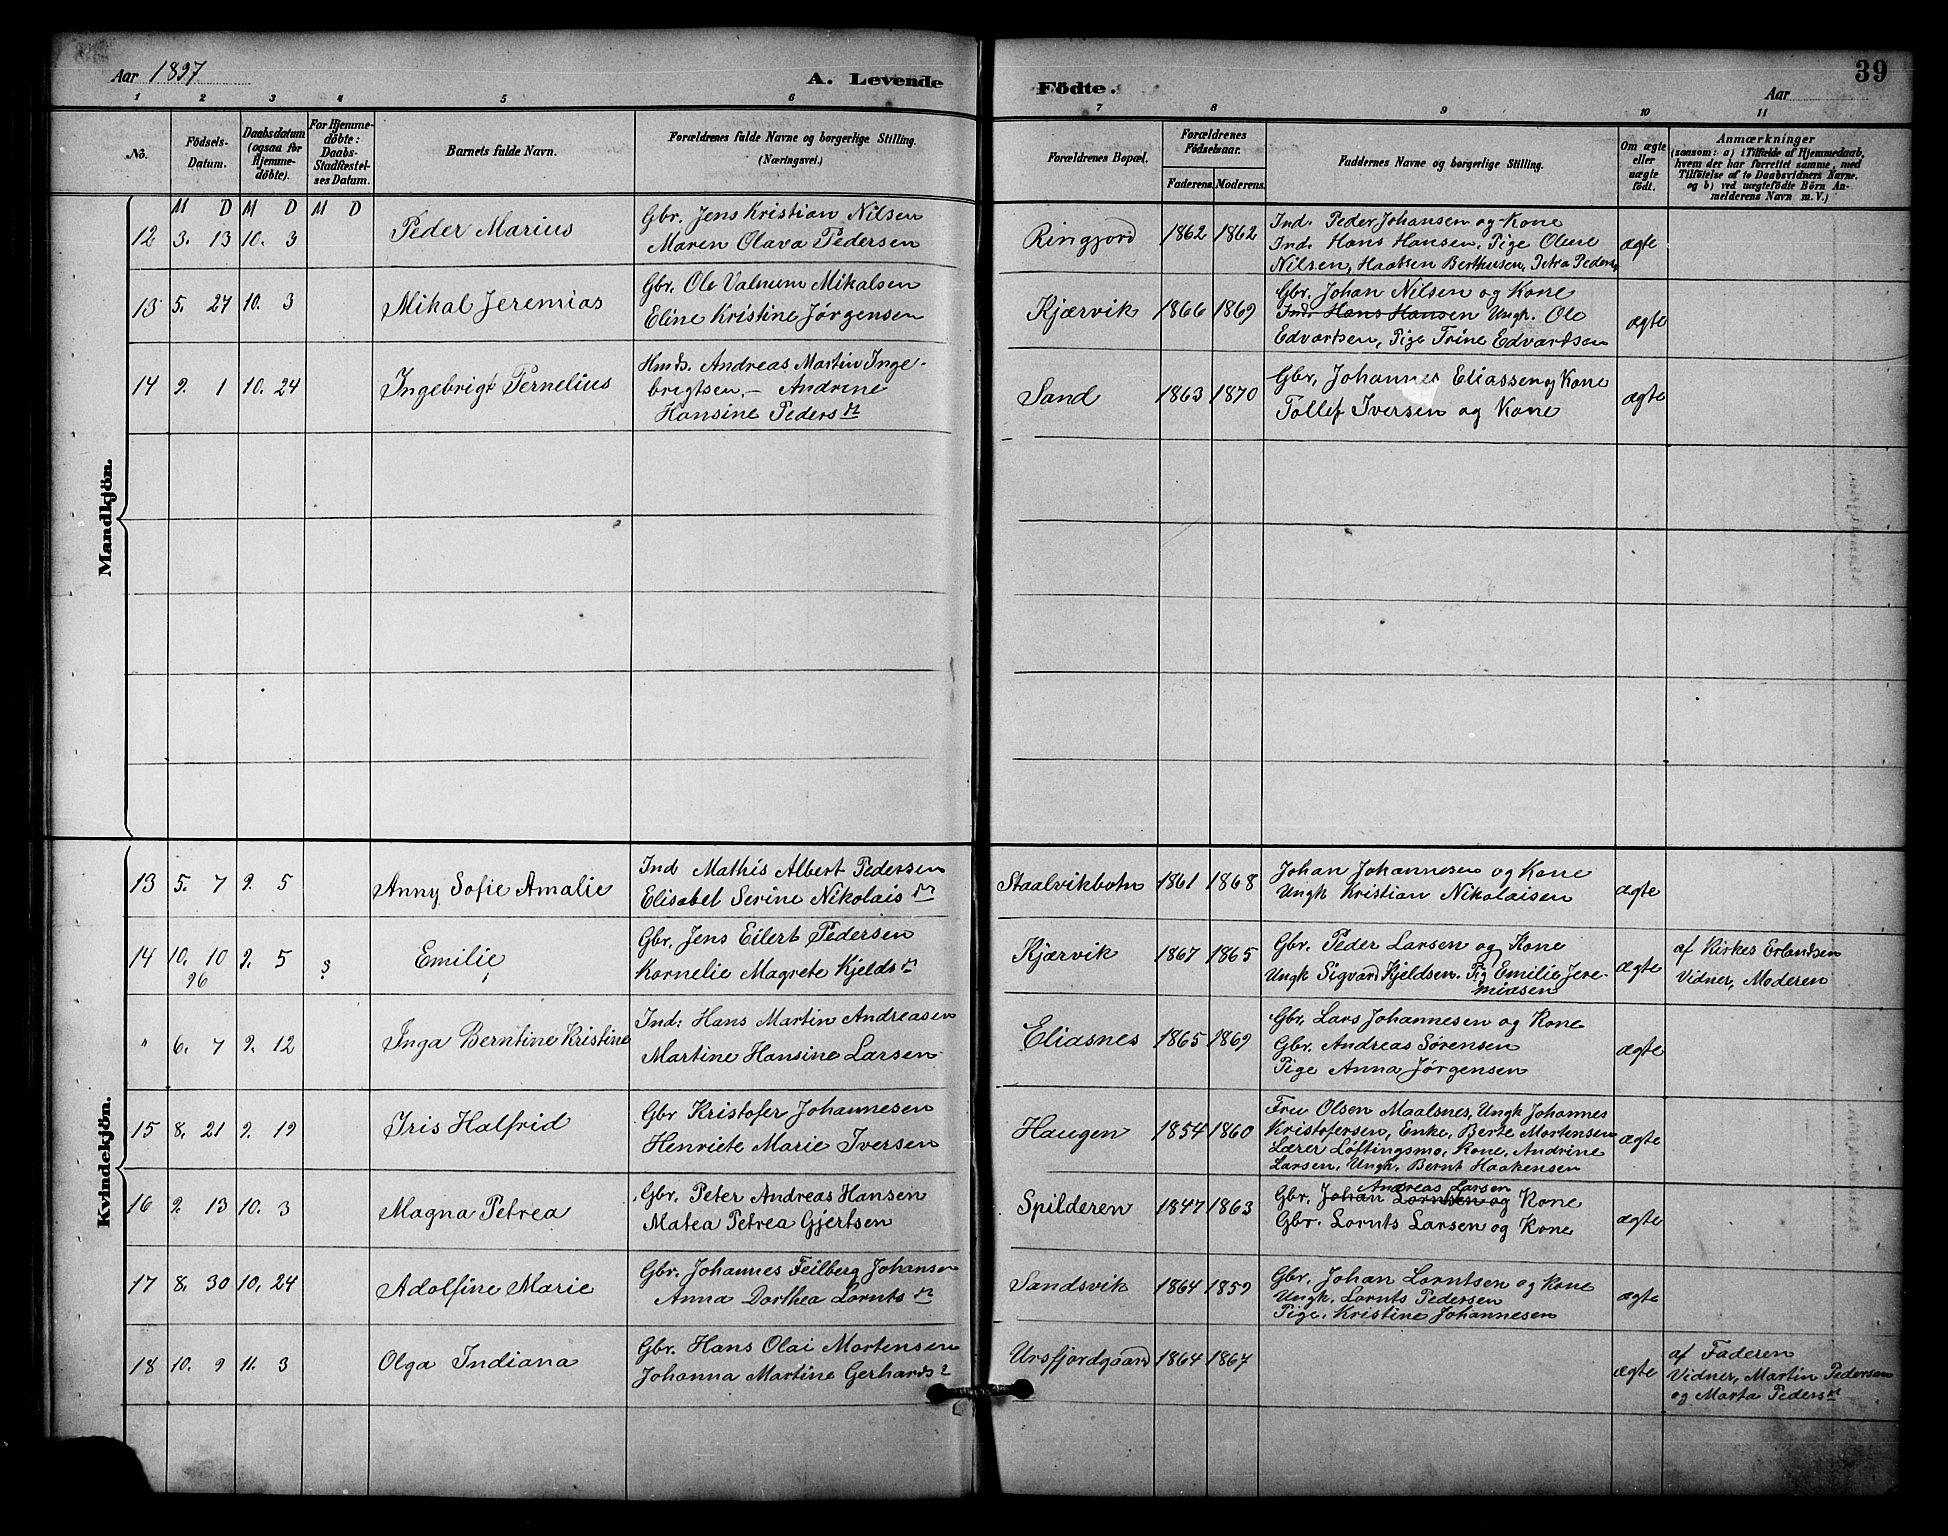 Aar 1897
A. Levende
Födte.
Aar
39
1 2 3 4 5 6 7 8 9 10 11
No.
Födsels-
Datum.
Daabsdatum
(ogsaa for
Hjemme-
döbte).
For Hjemme-
döbte:
Daabs-
Stadfæstel-
ses Datum.
Barnets fulde Navn.
Forældrenes fulde Navne og borgerlige Stilling.
(Næringsvei.)
Forældrenes Bopæl.
Forældrenes
Födselsaar.
Faderens. Moderens.
Faddernes Navne og borgerlige Stilling.
Om ægte
eller
uægte
födt.
Anmærkninger
(saasom: a) i Tilfælde af Hjemmedaab,
hvem der har forrettet samme, med
Tilföielse af to Daabsvidners Navne.
og b) ved uægtefödte Börn An-
melderens Navn m. V.)
Mandkjön.
M D M D M D
12 3. 13 10. 3
Peder Marius
Gbr. Jens Kristian Nilsen
Maren Olava Pedersen
Ringjord 1862 1862
Ind. Peder Johansen og Kone
Ind. Hans Hansen, Pige Oline
Nilsen, Haaksen Berthusen, Petra Peders
ægte
13 5. 27 10. 3
Mikal Jeremias
Gbr. Ole Valnum Mikalsen
Eline Kristine Jørgensen
Kjærvik 1866 1869
Gbr. Johan Nilsen og Kone
Ind. Hans Hansen Ungk. Ole
Edvartsen, Pige Trine Edvardsen
ægte
14 9. 1 10. 24
Ingebrigt Pernelius
Hmd. Andreas Martin Inge-
brigtsen – Andrine
Hansine Peders dt
Sand 1863 1870
Gbr, Johannes Eliassen og Kone
Tollef Iversen og Kone
ægte
Kvindekjön.
13 5. 7 9. 5
Anny Sofie Amalie
Ind Mathis Albert Pedersen
Elisabet Serine Nikolais dt
Staalvikbotn 1861 1868
Johan Johannesen og Kone
Ungk Kristian Nikolaisen
ægte
14 10. 10 9. 5
96
Emilie
Gbr. Jens Eilert Pedersen
Kornelie Magrete Kjelds dt
Kjærvik 1867 1865
Gbr. Peder Larsen og Kone
Ungk Sigvard Kjeldsen. Pig Emilie Jere-
miasen
ægte
af Kirkes Erlandsen
Vidner, Moderen
" 6. 7 9. 12
Inga Berntine Kristine
Ind: Hans Martin Andreasen
Martine Hansine Larsen
Eliasnes 1865 1869
Gbr, Lars Johannesen og Kone
Gbr. Andreas Sørensen
Pige Anna Jørgensen
ægte
15 8. 21 9. 19
Iris Halfrid
Gbr Kristofer Johannesen
Henriete Marie Iversen
Haugen 1854 1860
Fru Olsen Maalsnes, Ungk Johannes
Kristofersen, Enke, Berte Mortensen
Lærer Løftingsmo, Kone, Andrine
Larsen, Ungk, Bernt Haakensen
ægte
16 9. 13 10. 3
Magna Petrea
Gbr. Peter Andreas Hansen
Matea Petrea Gjertsen
Spilderen 1847 1863
Andreas Larsen
Gbr. Johan Lorntsen og Kone
Gbr. Lornts Larsen og Kone
ægte
17 8. 30 10. 24
Adolfine Marie
Gbr. Johannes Feilberg Johansen
Anna Dorthea Lornts dt
Sandsvik 1864 1859
Gbr. Johan Lorntsen og Kone
Ungk. Lornts Pedersen
Pige. Kristine Johannesen
ægte
18 10. 9 11. 3
Olga Indiana
Gbr. Hans Olai Mortensen
Johanna Martine Gerhards
Ursfjordgaard 1864 1867
ægte
af Faderen
Vidner, Martin Pedersen
og Marta Peders dt